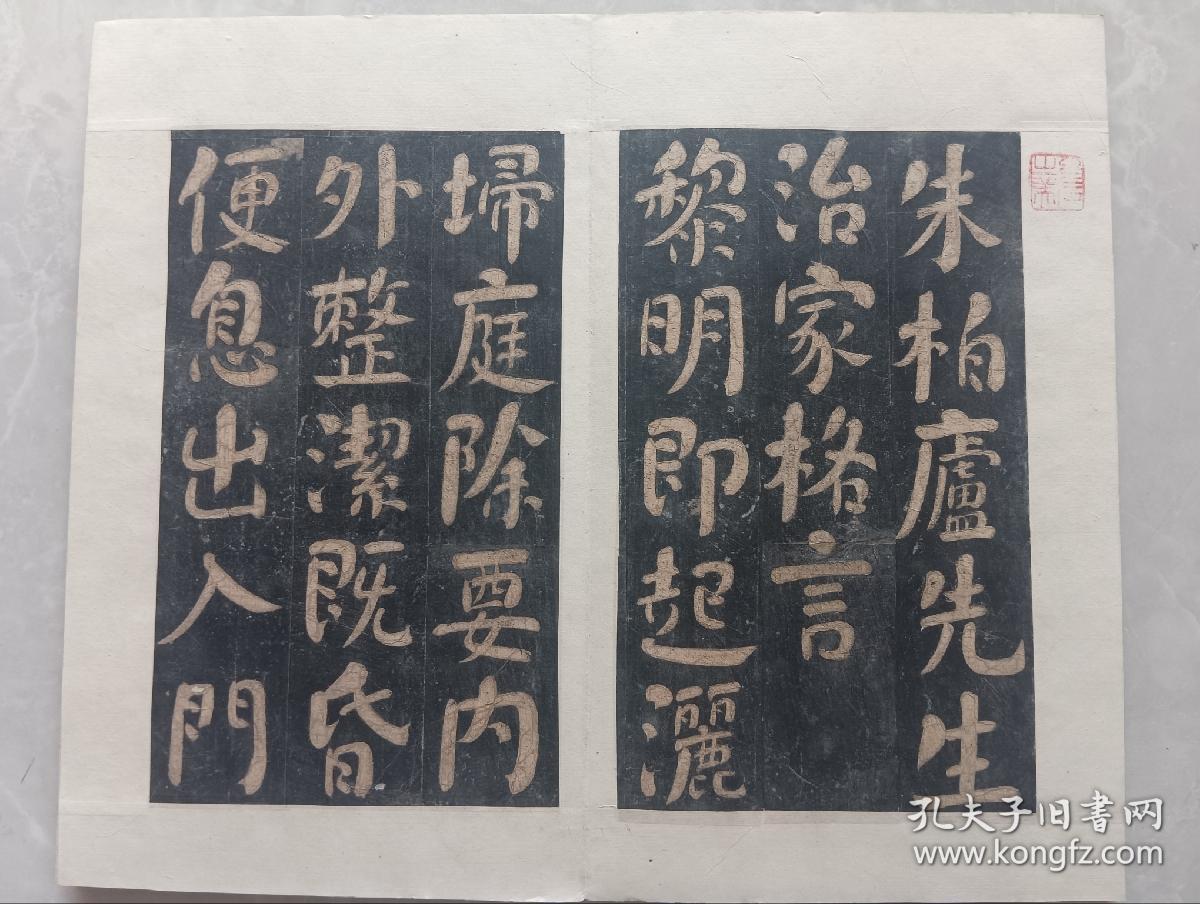 朱柏廬先生
治家格言
黎明即起灑
埽庭除要内
外整潔既昏
便息出入門
孔夫子旧书网
www.kongfz.com